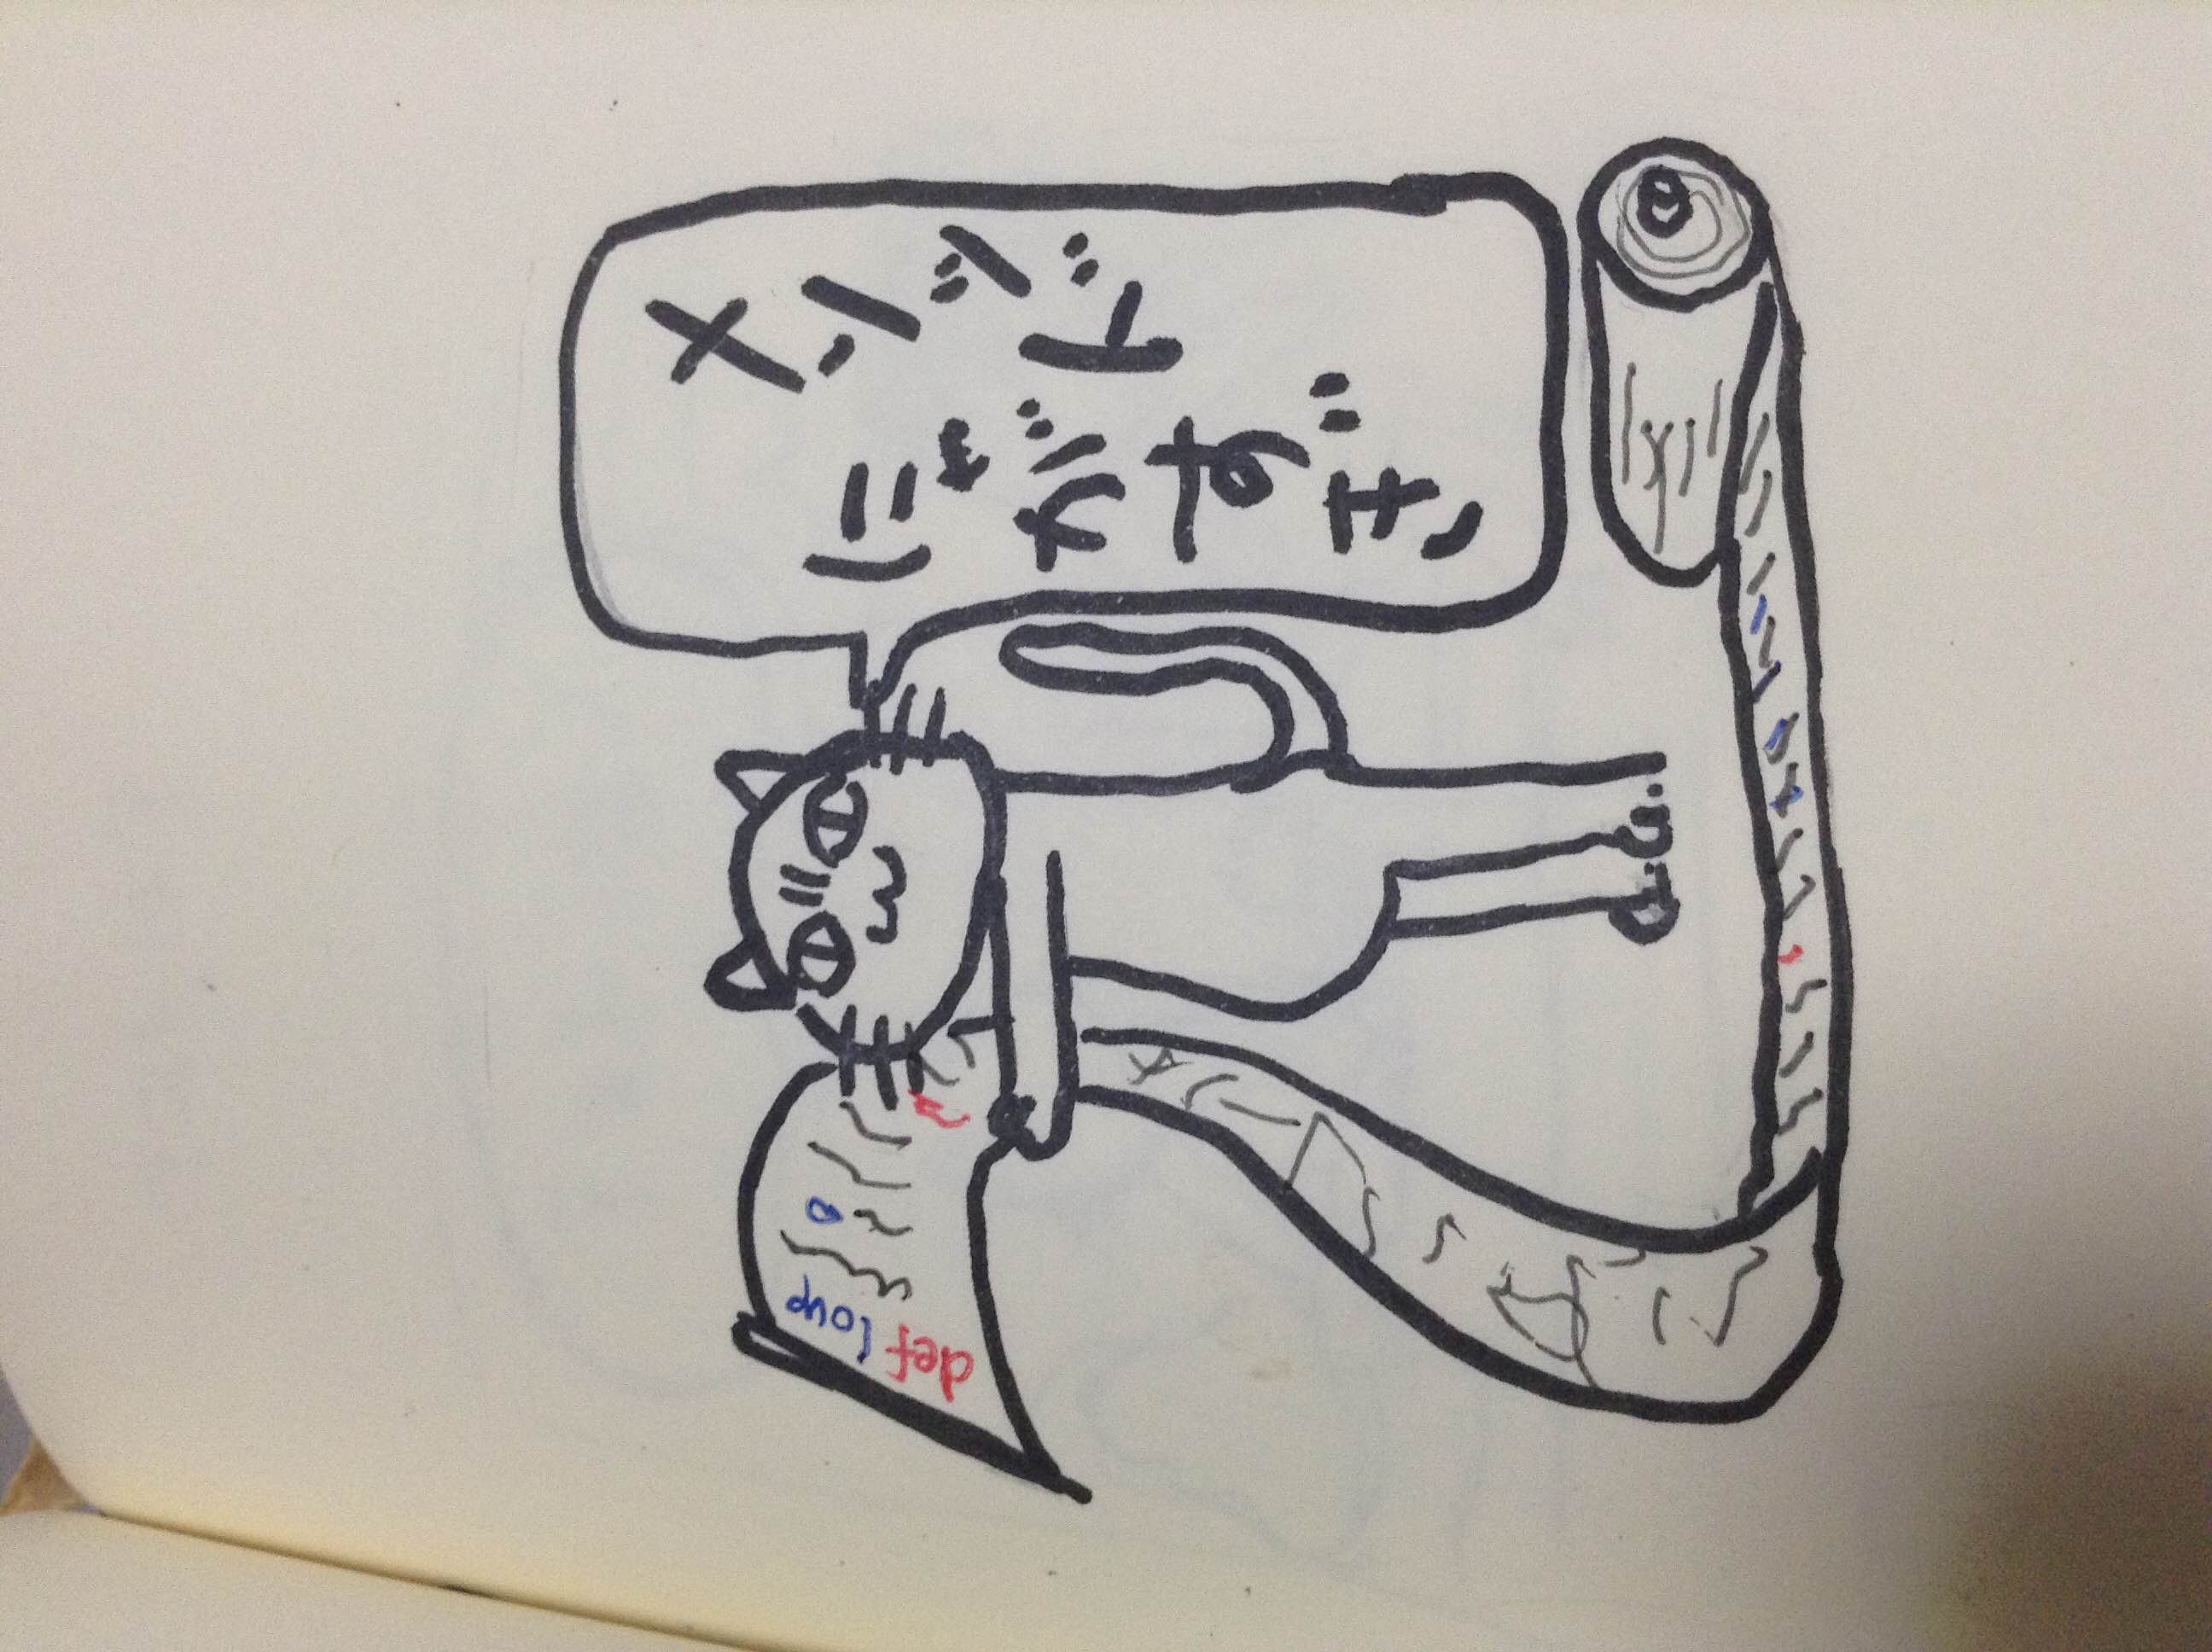 メソッド
にゃがすぎ
def loup